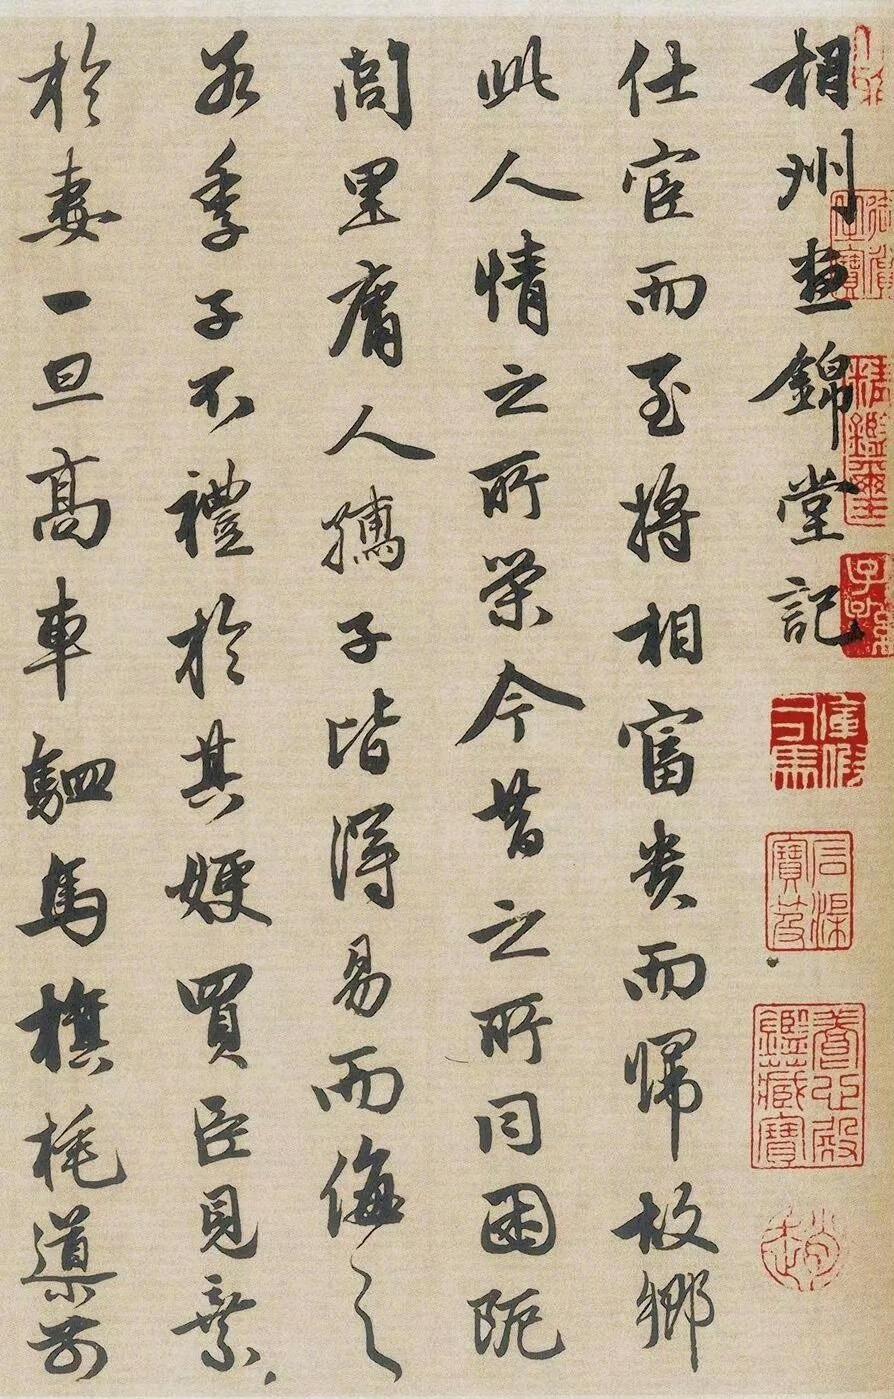 相州晝錦堂記
仕宦而至將相富貴而歸故鄉
此人情之所榮今昔之所同困阨
閭里庸人孺子皆得易而侮之
若季子不禮於其嫂買臣見棄
於妻一旦高車駟馬旗旄導前
精鑑璽
石渠寶笈
養心殿鑑藏寶